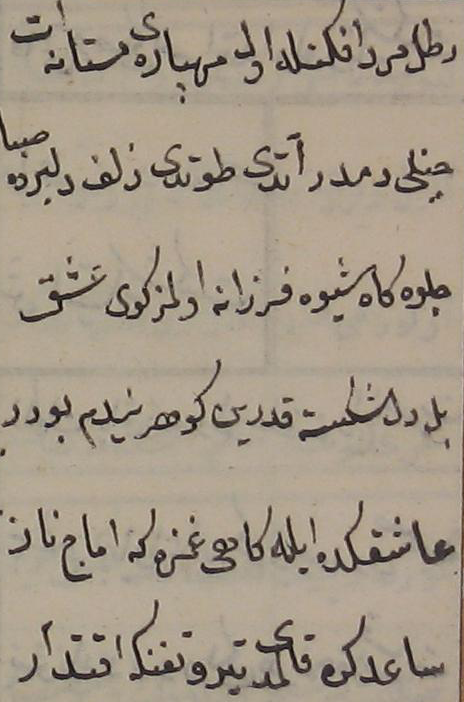 رطل مرد افكنله اول مهپاره‌ی مستانه ات
چنلی دمدر آتدی طوتدی زلف دلبرده صبا
جلوه كاه شیوه فرزانه اولمز كوی عشق
بل دل اشكسته قدرین كوهر نیدم بودر
عاشقكده ایله كاهی غمزه كه اماج ناز
ساعدكده قالمدی تیر و تفنكه اقتدار